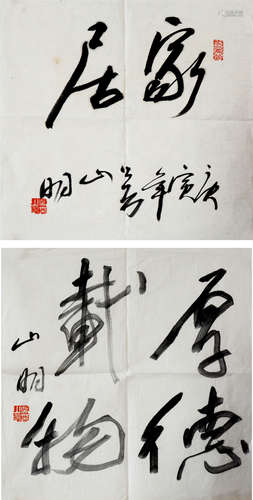 家居
庚寅年吴山明
厚德
載物
山明